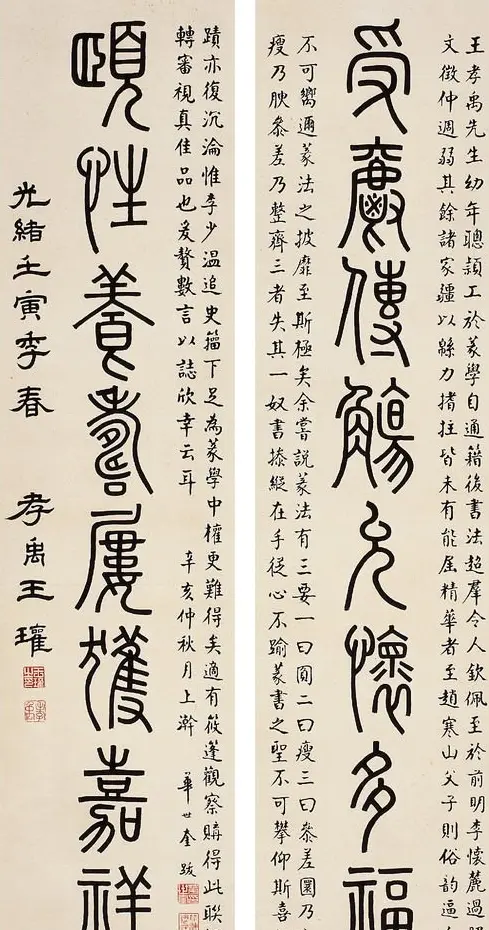 王孝禹先生幼年聰穎工於篆學自通籍後書法超羣令人欽佩至於前明李懷麓過
文徵仲週弱其餘諸家疆以緜力搘拄皆未有能居精華者至趙寒山父子則俗韵逼
受爵傳觴允懷多福
不可嚮邇篆法之披靡至斯極矣余嘗說篆法有三要一曰圓二曰瘦三曰叅差圓乃
瘦乃腴叅差乃整齊三者失其一奴書操縱在手從心不踰篆書之聖不可攀仰斯喜
蹟亦復沉淪惟李少溫追史籀下足為篆學中權更難得矣適有筱蓬觀察購得此聯
轉審視真佳品也爰贅數言以誌欣幸云耳 辛亥仲秋月上澣 華世奎跋
頤性養壽屢獲嘉祥
光緒壬寅季春 孝禹王瓘